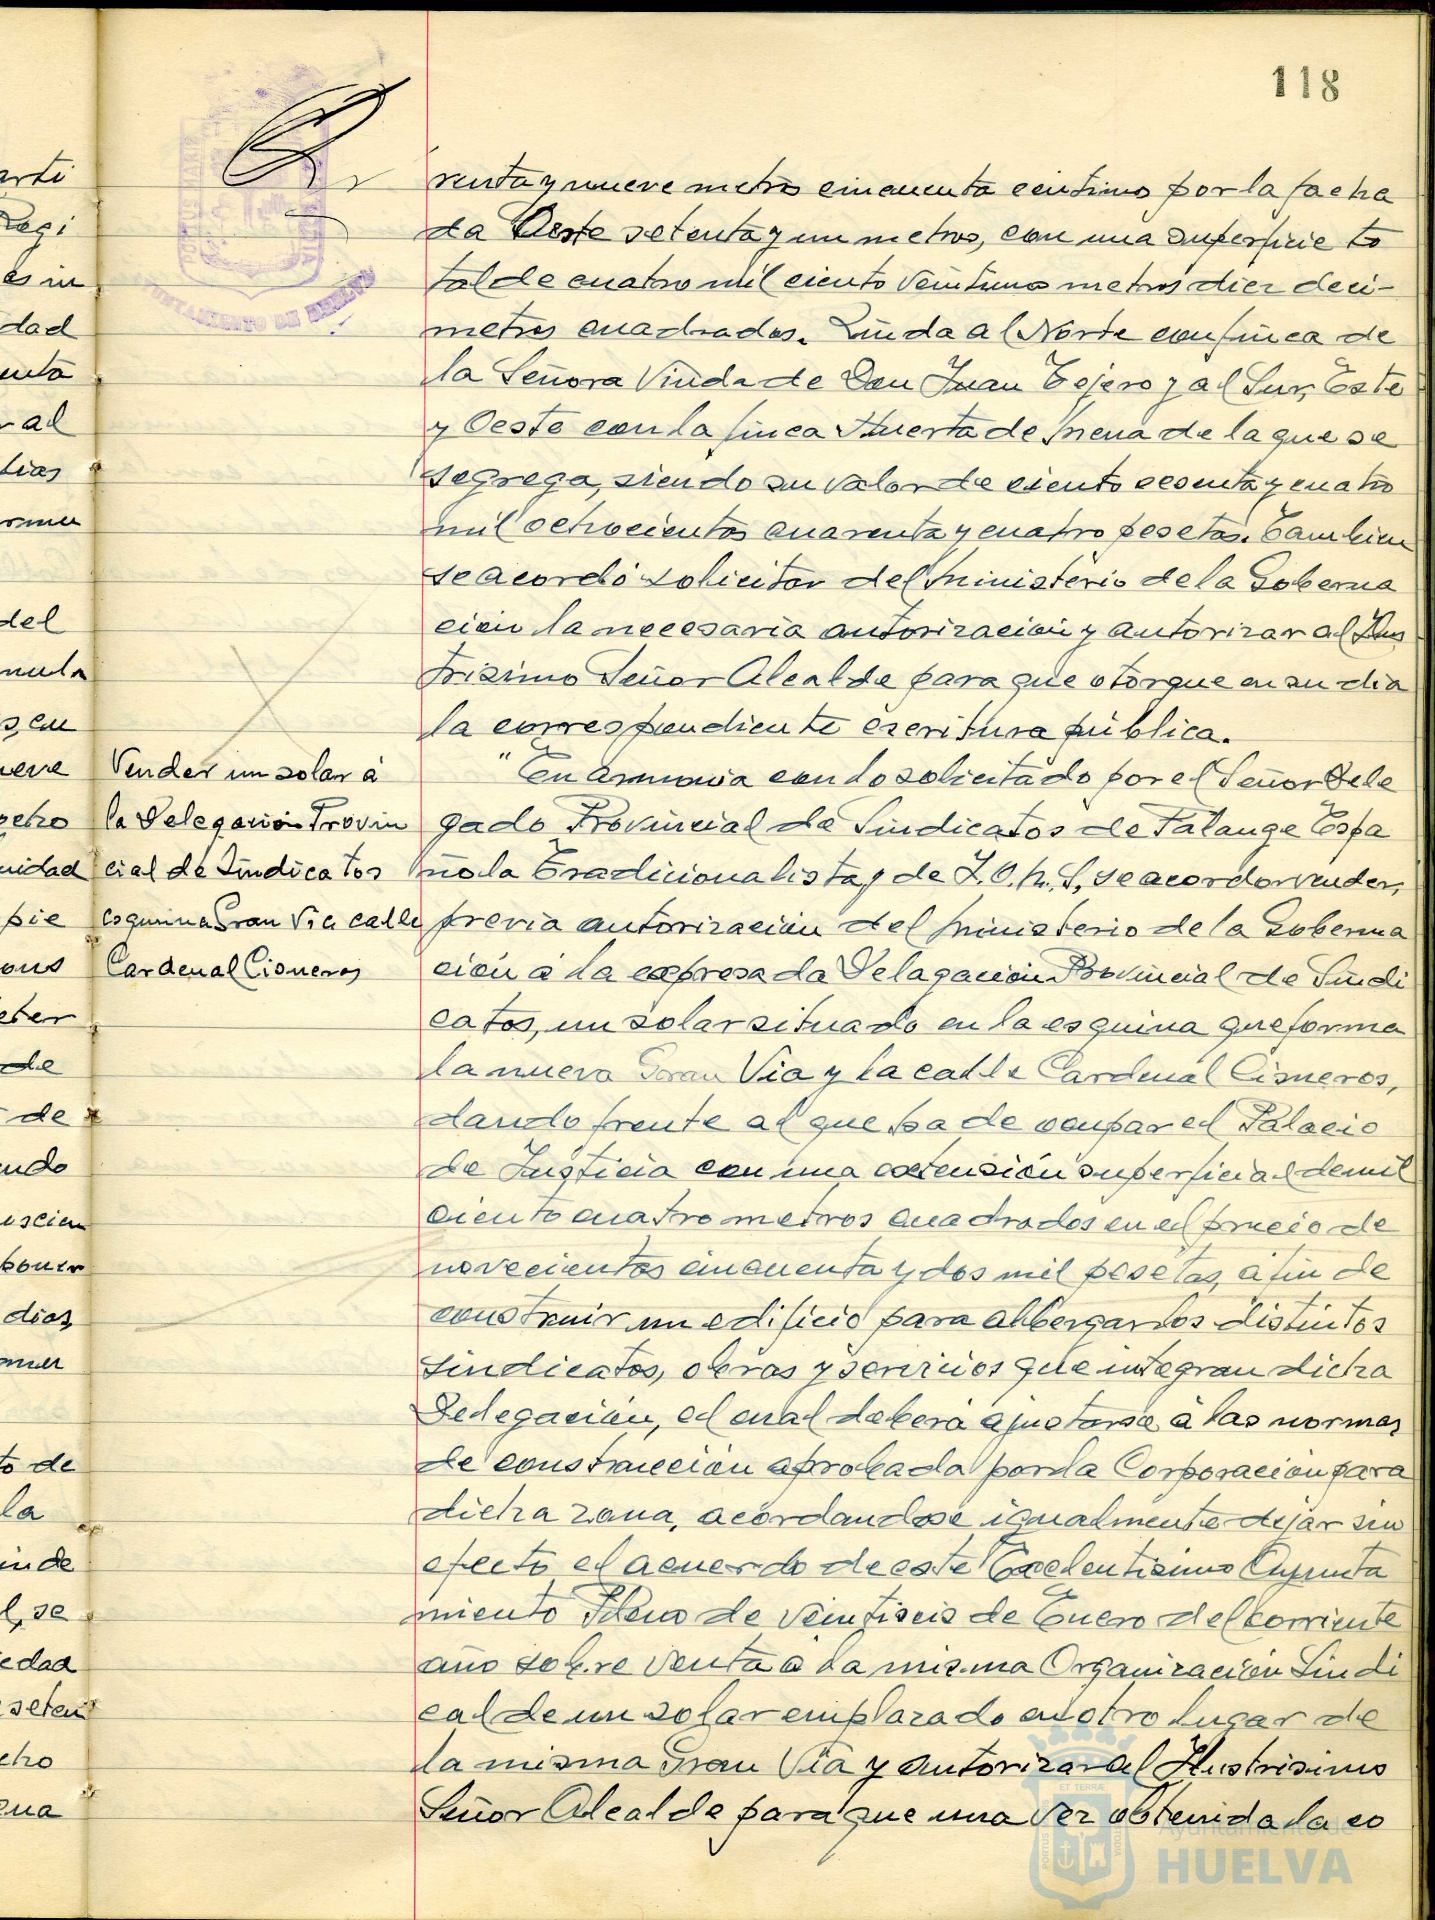 118
renta y nueve metros cincuenta centimos por la facha
da Oeste setenta y un metros, con una superficie to
tal de cuatro mil ciento veintiuno metros diez deci-
metros cuadrados. Linda al Norte con finca de
la Señora Viuda de Don Juan Tejero y al Sur, Este
y Oeste con la finca Huerta de Mena de la que se
segrega, siendo su valor de ciento sesenta y cuatro
mil ochocientos cuarenta y cuatro pesetas. Tambien
se acordó solicitar del Ministerio de la Goberna
ción la necesaria autorización y autorizar al Ilus
trisimo Señor Alcalde para que otorgue en su dia
la correspondiente escritura pública.
Vender un solar á
la Delegación Provin
cial de Sindicatos
esquina Gran Via calle
Cardenal Cisneros
"En armonia con lo solicitado por el Señor Dele
gado Provincial de Sindicatos de Falange Espa
ñola Tradicionalista y de J.O.N.S, se acordó vender,
previa autorización del Ministerio de la Goberna
ción á la expresada Delegación Provincial de Sindi
catos, un solar situado en la esquina que forma
la nueva Gran Via y la calle Cardenal Cisneros,
dando frente al que ha de ocupar el Palacio
de Justicia con una extensión superficial de mil
ciento cuatro metros cuadrados en el precio de
novecientos cincuenta y dos mil pesetas, á fin de
construir un edificio para albergar los distintos
Sindicatos, obras y servicios que integran dicha
Delegación, el cual deberá ajustarse á las normas
de construcción aprobada por la Corporación para
dicha zona, acordandose igualmente dejar sin
efecto el acuerdo de este Excelentisimo Ayunta
miento Pleno de veintiseis de Enero del corriente
año sobre venta á la misma Organización Sindi
cal de un solar emplazado en otro lugar de
la misma Gran Via y autorizar al Ilustrisimo
Señor Alcalde para que una vez obtenida la co
arti
Regi
es in
dad
enta
r al
lias
del
s, en
ueve
uidad
pie
ons
eter
de
de
endo
dias,
to de
la
in de
l, se
iedad
seten
cho
ena
AYUNTAMIENTO DE HUELVA
Ayuntamiento de
HUELVA